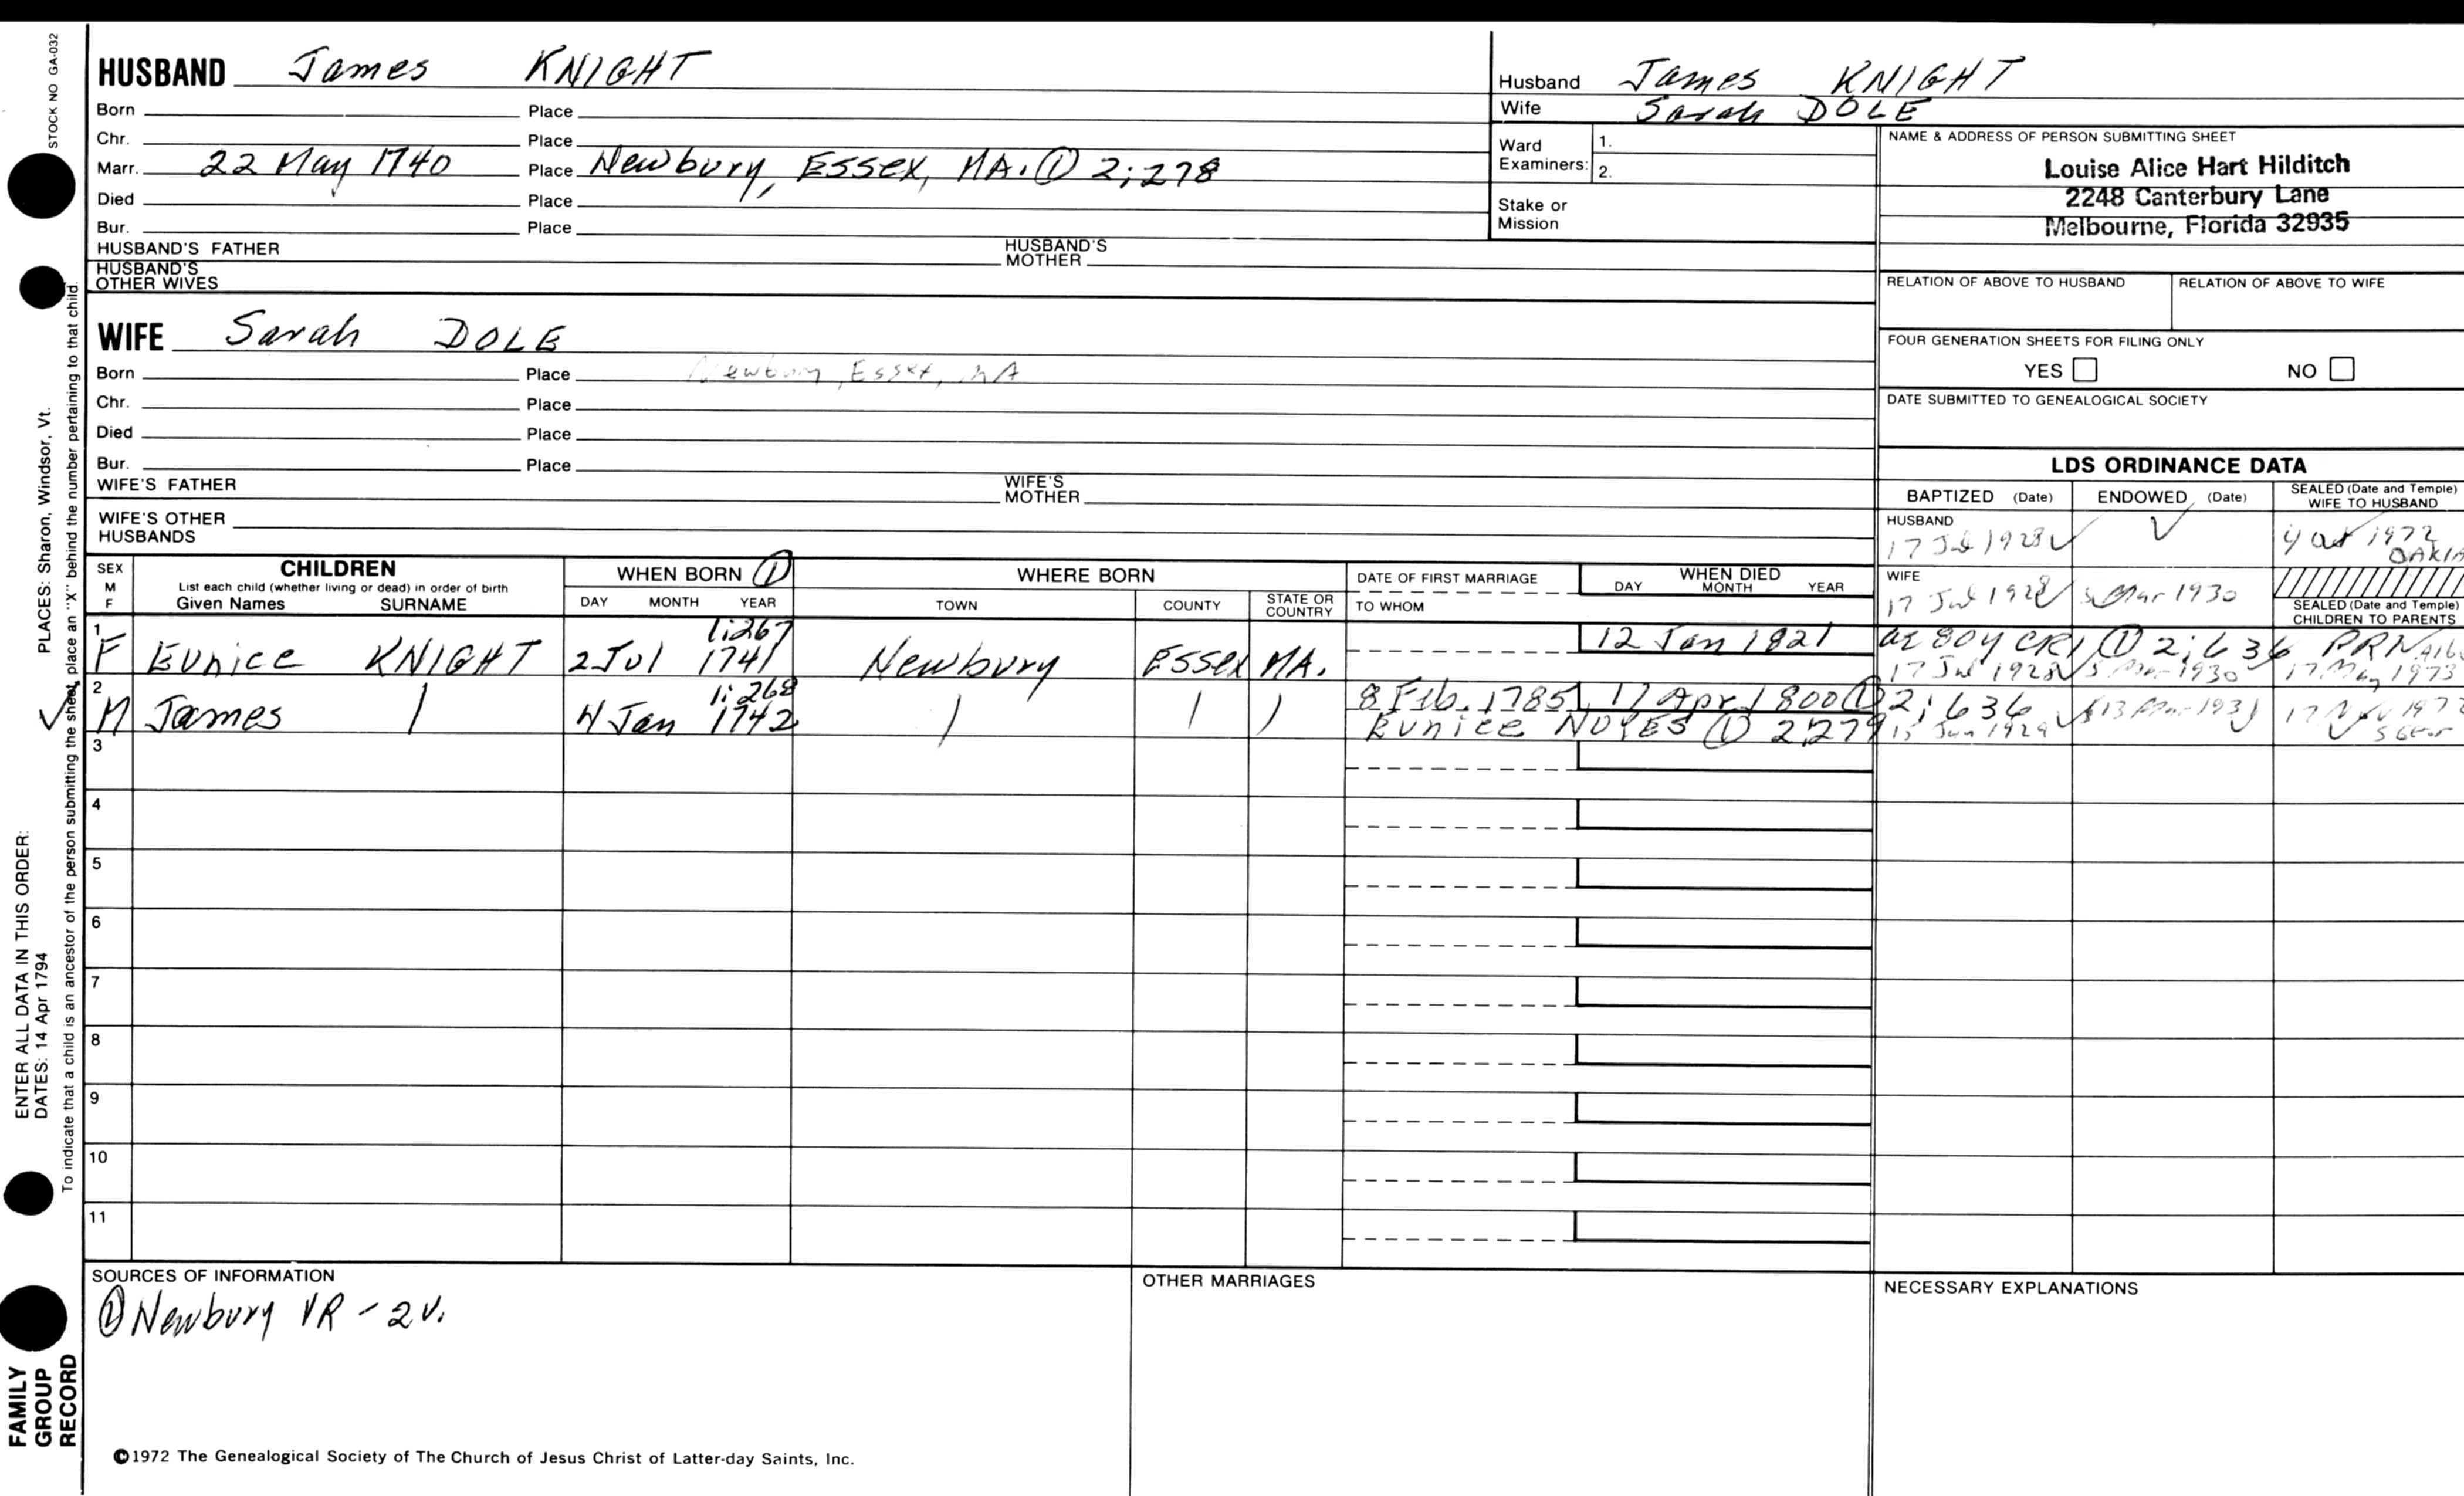 STOCK NO GA-032
HUSBAND James KNIGHT
Born Place
Chr. Place
Marr. 22 May 1740 Place Newbury, Essex, MA. ① 2;278
Died Place
Bur. Place
HUSBAND'S FATHER HUSBAND'S MOTHER
HUSBAND'S OTHER WIVES
WIFE Sarah DOLE
Born Place Newbury, Essex, MA
Chr. Place
Died Place
Bur. Place
WIFE'S FATHER WIFE'S MOTHER
WIFE'S OTHER HUSBANDS
Husband James KNIGHT
Wife Sarah DOLE
Ward Examiners: 1.
2.
Stake or Mission
NAME & ADDRESS OF PERSON SUBMITTING SHEET
Louise Alice Hart Hilditch
2248 Canterbury Lane
Melbourne, Florida 32935
RELATION OF ABOVE TO HUSBAND RELATION OF ABOVE TO WIFE
FOUR GENERATION SHEETS FOR FILING ONLY
YES NO
DATE SUBMITTED TO GENEALOGICAL SOCIETY
LDS ORDINANCE DATA
BAPTIZED (Date) ENDOWED (Date) SEALED (Date and Temple) WIFE TO HUSBAND
HUSBAND
17 Jul 1928 ✓ ✓ 1972
WIFE
17 Jul 1928 Mar 1930
SEALED (Date and Temple) CHILDREN TO PARENTS
SEX M F
CHILDREN
List each child (whether living or dead) in order of birth
Given Names SURNAME
WHEN BORN ①
DAY MONTH YEAR
WHERE BORN
TOWN COUNTY STATE OR COUNTRY
DATE OF FIRST MARRIAGE
TO WHOM
WHEN DIED
DAY MONTH YEAR
1 1:267 12 Jan 1821 ae 80y CR1 ① 2;636 PRN
F Eunice KNIGHT 2 Jul 1741 Newbury Essex MA. 17 Jul 1928 ✓ 5 Mar 1930 17 May 1973
2 1:268 8 Feb. 1785 17 Apr 1800 ① 2;636
✓ M James 4 Jan 1742 Eunice NOYES ① 2279 Jun 1929 13 Mar 1931 17
3
4
5
6
7
8
9
10
11
SOURCES OF INFORMATION
① Newbury VR - 2v.
OTHER MARRIAGES
NECESSARY EXPLANATIONS
©1972 The Genealogical Society of The Church of Jesus Christ of Latter-day Saints, Inc.
ENTER ALL DATA IN THIS ORDER: PLACES: Sharon, Windsor, Vt.
DATES: 14 Apr 1794
To indicate that a child is an ancestor of the person submitting the sheet, place an "X" behind the number pertaining to that child.
FAMILY
GROUP
RECORD